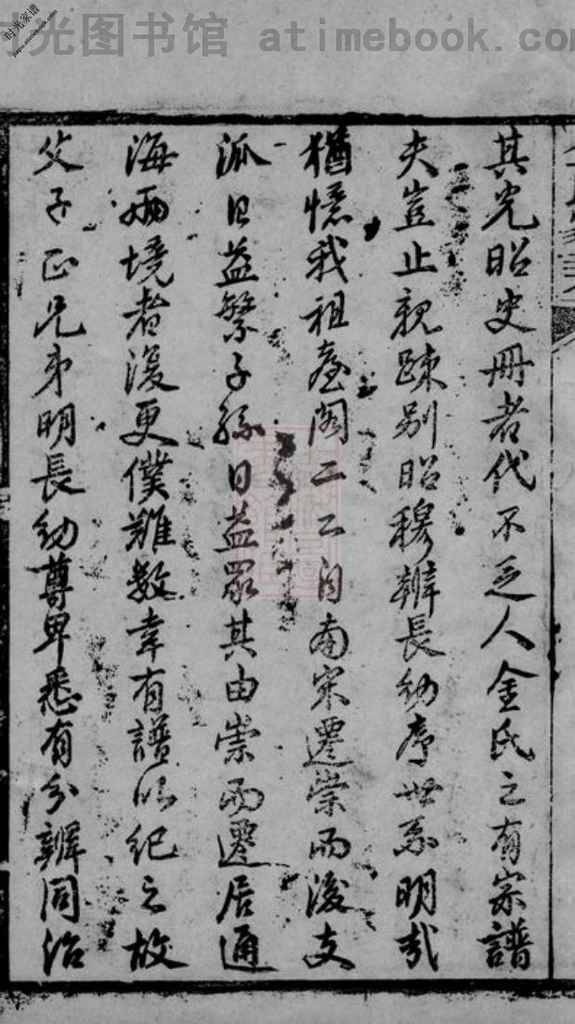 时光图书馆 atimebook.com
时光家谱
其光昭史册者代不乏人金氏之有宗譜
夫豈止親踈别昭穆辨長幼序世系明哉
猶憶我祖臺閣二二公自南宋遷崇而後支
派日益繁子孫日益眾其由崇而遷居通
海兩境者復更僕難數幸有譜以紀之故
父子正兄弟明長幼尊卑悉有分辨同治